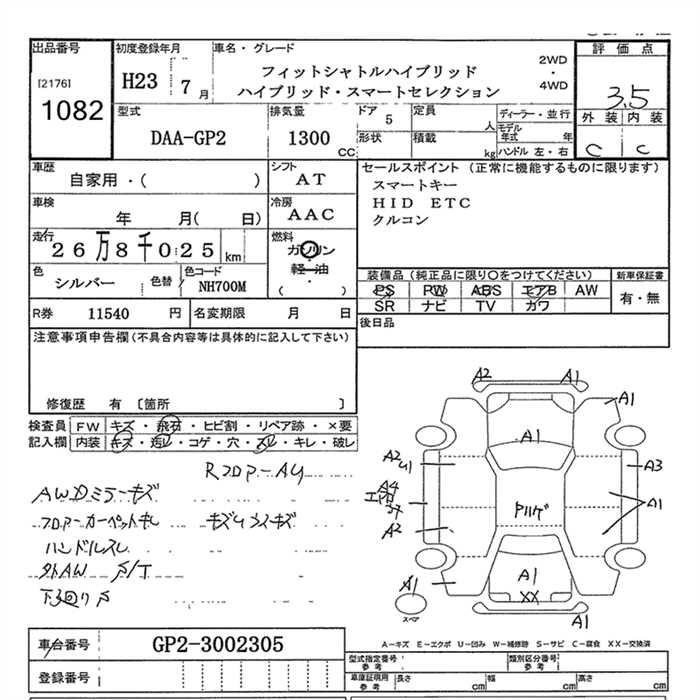 出品番号
[2176]
1082
初度登録年月
H23 7 月
車名・グレード
フィットシャトルハイブリッド
ハイブリッド・スマートセレクション
2WD
・
4WD
評価点
3.5
外装 内装
C C
型式
DAA-GP2
排気量
1300 CC
ドア 5
定員 人
形状
積載 kg
ディーラー・並行
モデル年式 年
ハンドル 左・右
車歴
自家用・( )
シフト
AT
車検
年 月( 日)
冷房
AAC
走行
26万8千025 km
燃料
ガソリン
軽油
・
( )
色
シルバー
色替
色コード
NH700M
セールスポイント (正常に機能するものに限ります)
スマートキー
HID ETC
クルコン
装備品 (純正品に限り○をつけてください)
PS PW ABS エアB AW
SR ナビ TV カワ
新車保証書
有・無
R券 11540 円
名変期限 月 日
後日品
注意事項申告欄 (不具合内容等は具体的に記入して下さい)
修復歴 有 〔箇所 〕
検査員記入欄
FW キズ・飛石・ヒビ割・リペア跡・×要
内装 キズ・汚レ・コゲ・穴・スレ・キレ・破レ
RフロアーAU
AWDミラーキズ
フロアーカーペットキレ
ハンドルスレ
外AW
下廻りサ
A2 A1
A1
A1
A2
U1
A3
A4
A1
A2
A1
A1
XX
A1
スペア
A1
A-キズ E-エクボ U-凹み W-補修跡 S-サビ C-腐食 XX-交換済
車台番号 GP2-3002305
登録番号
型式指定番号
参考
類別区分番号
参考
車庫証明用
参考
長さ cm
幅 cm
高さ cm